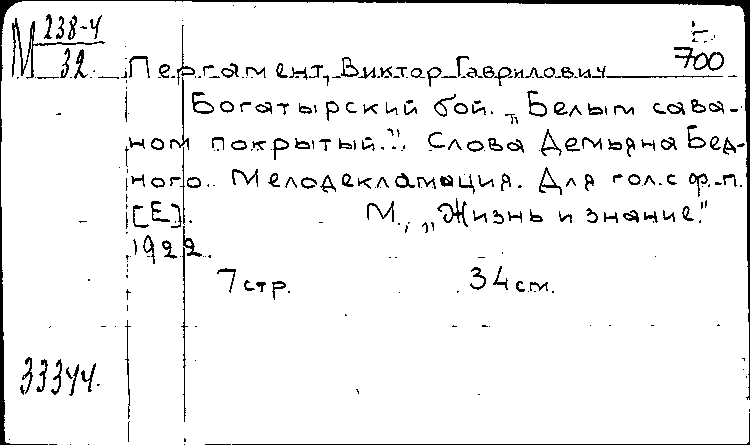 М 238-4
32.
Пергамент, Виктор Гаврилович
700
Богатырский бой. „Белым сава-
ном покрытый.". Слова Демьяна Бед-
ного. Мелодекламация. Для гол. с ф.-п.
[E]. М., „Жизнь и знание."
1922.
7 стр. 34 см.
33344.